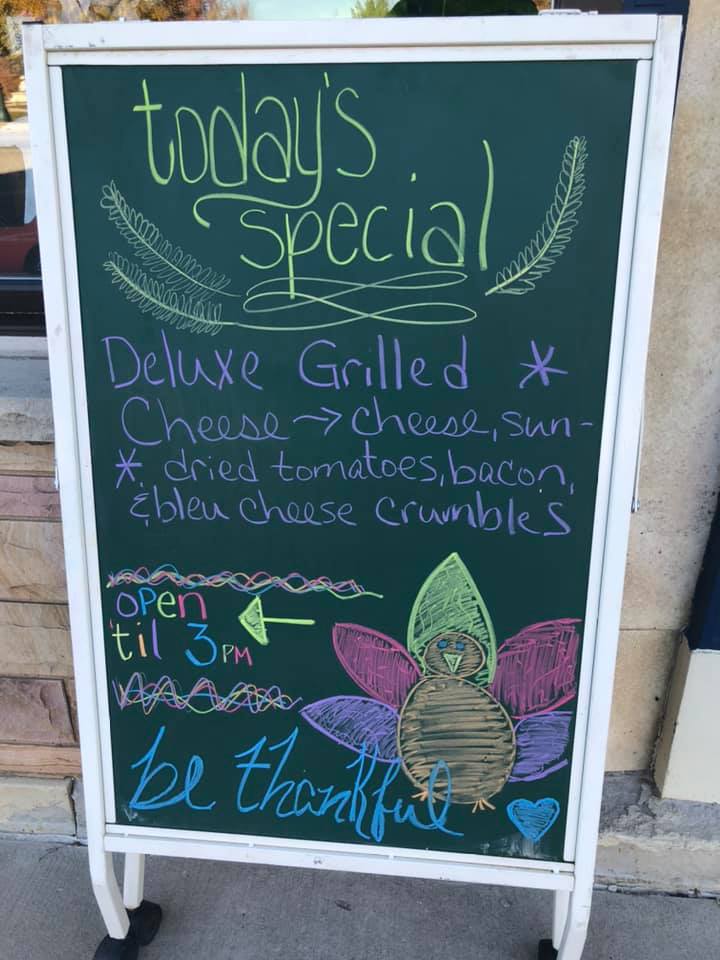 today's
special
Deluxe Grilled *
Cheese → cheese, sun-
* dried tomatoes, bacon,
& bleu cheese crumbles
open
'til 3 PM
be thankful